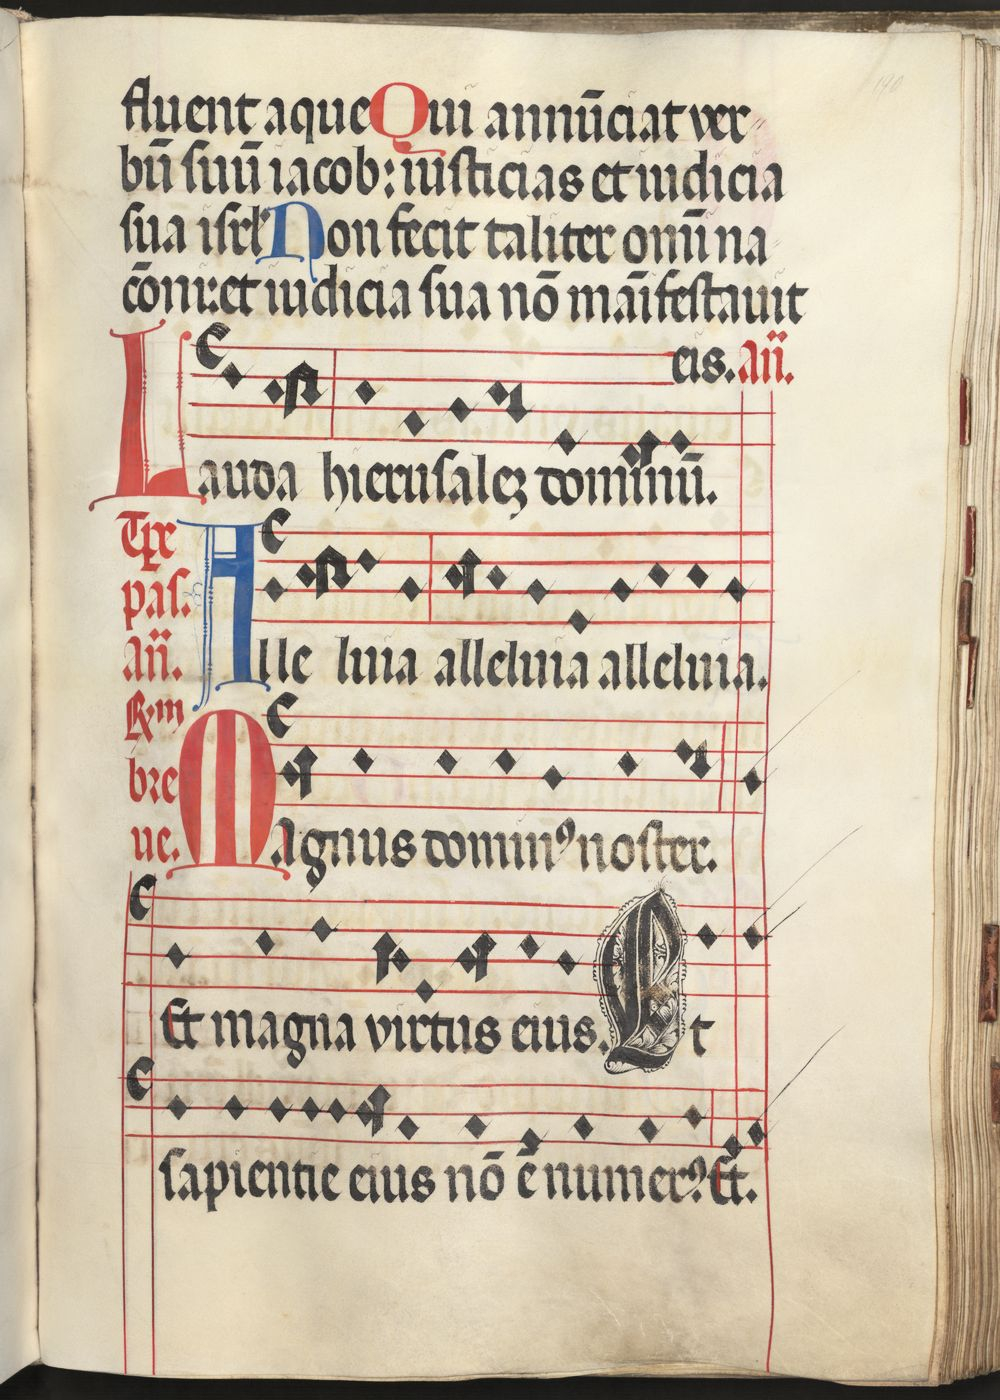 fluent aque Qui annūciat ver
bū suū iacob: iusticias et iudicia
sua isrl Non fecit taliter omī na
cōni: et iudicia sua nō māifestauit
eis. añ.
Lauda hierusalez dominū.
Tpe
pas.
añ.
Alle luia alleluia alleluia.
℟m
bre
ue.
Magnus dominꝰ noster.
Et magna virtus eius. Et
sapientie eius nō ē numerꝰ. Et.
190